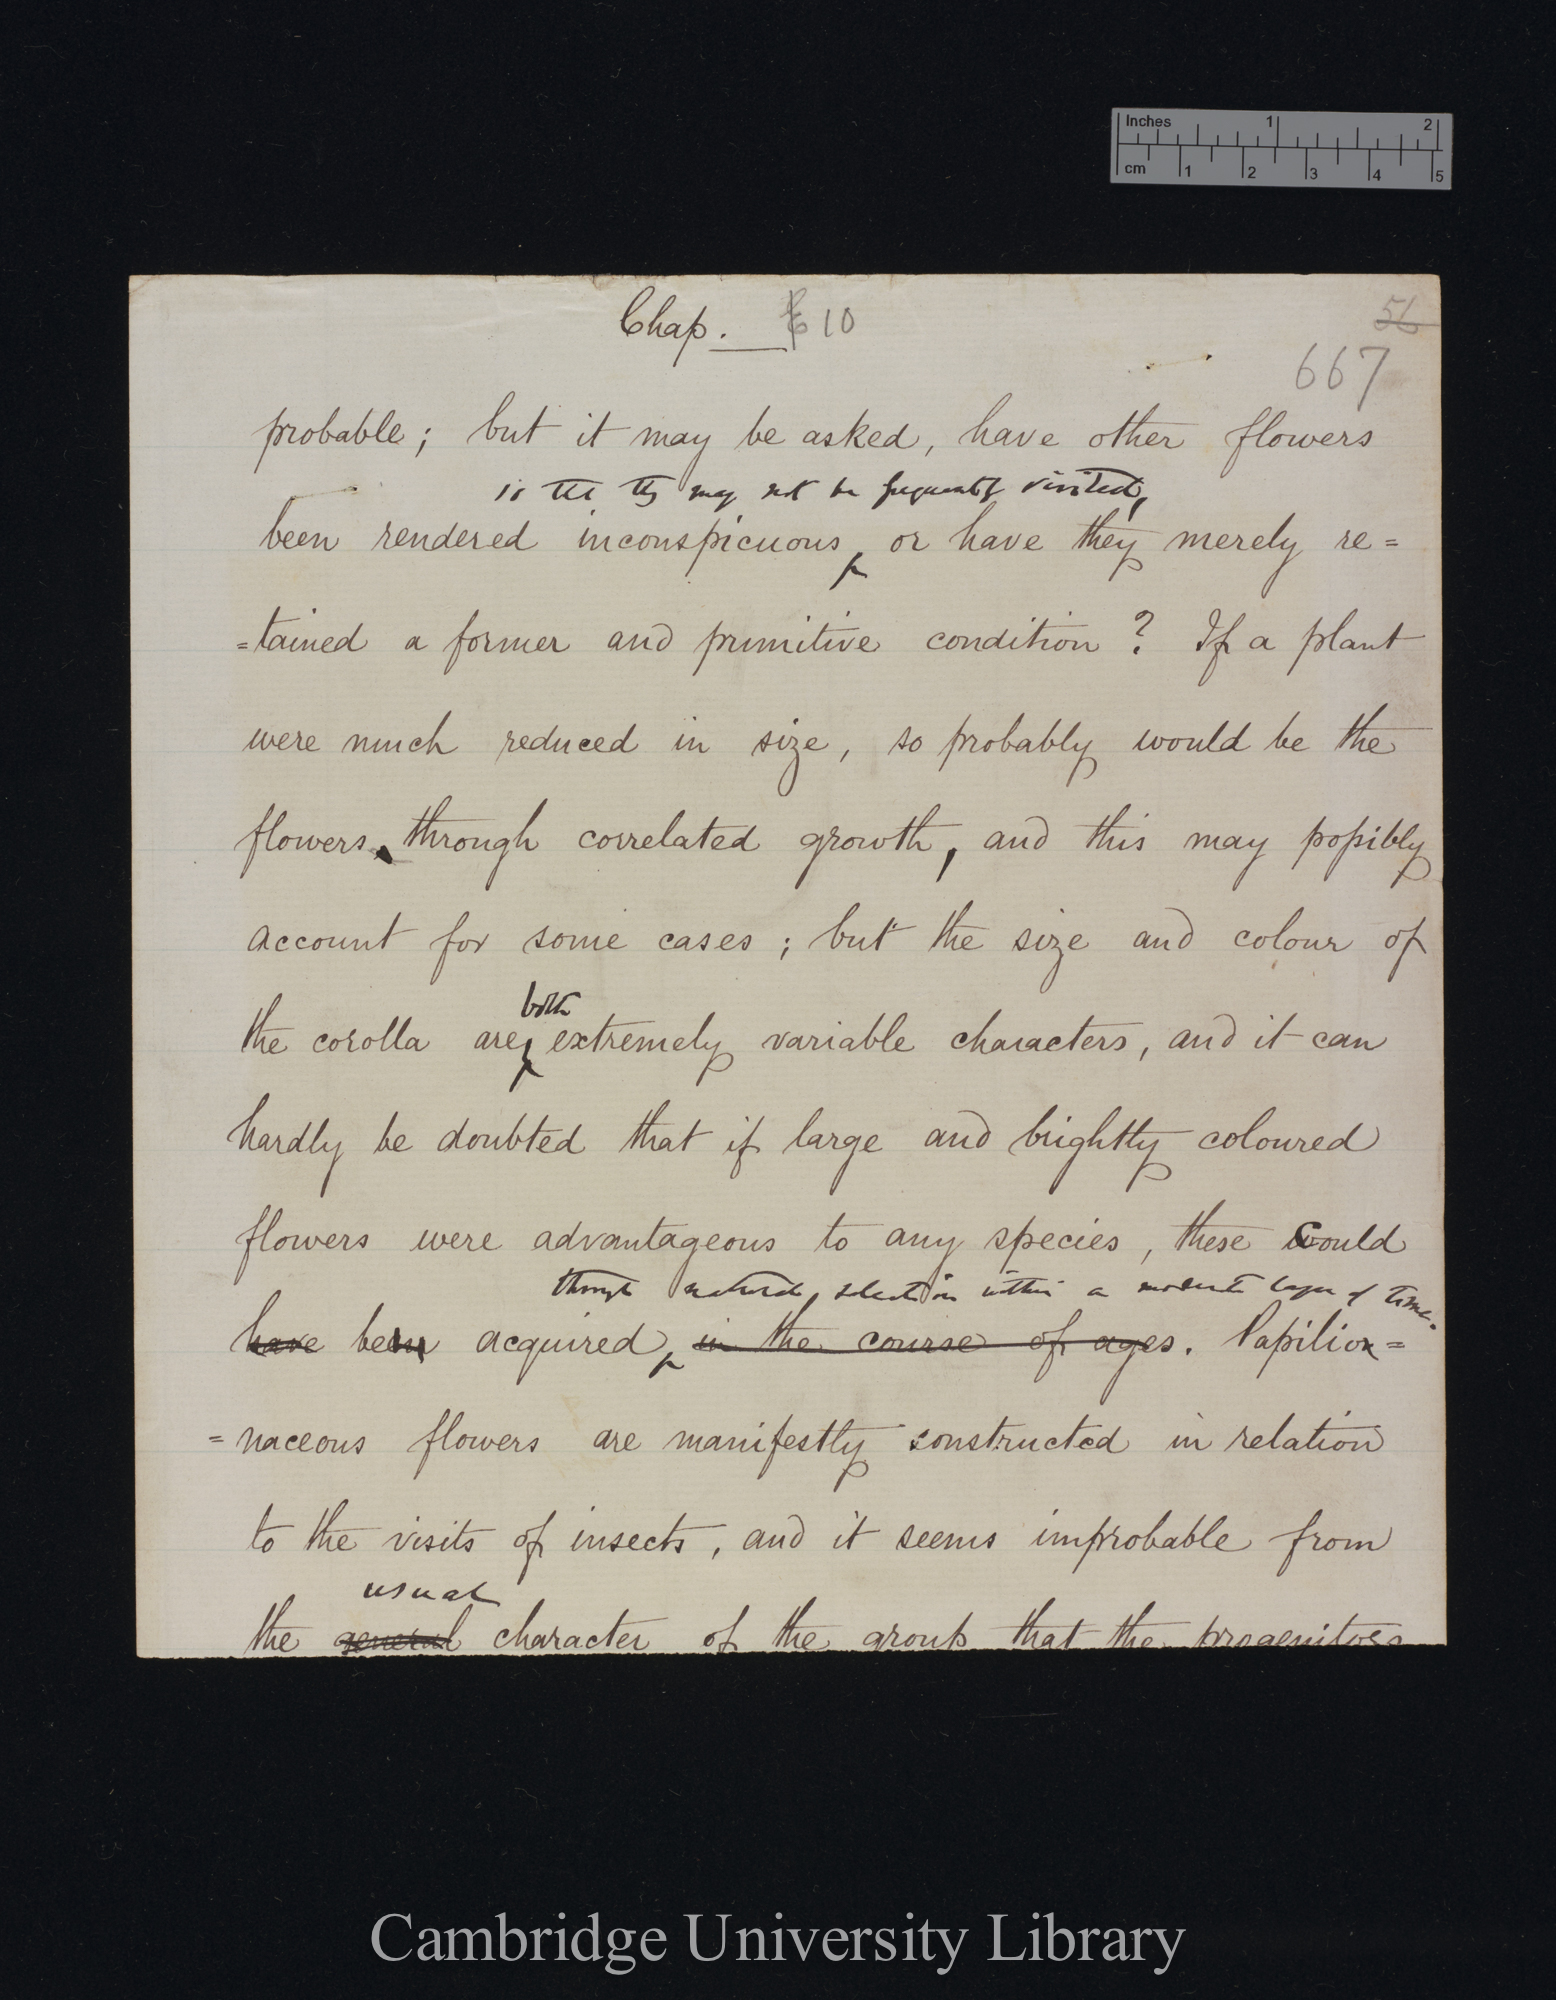 Inches 1 2
cm 1 2 3 4 5
Chap. 10
56
667
probable; but it may be asked, have other flowers
so that they may not be frequently visited,
been rendered inconspicuous, or have they merely re=
=tained a former and primitive condition? If a plant
were much reduced in size, so probably would be the
flowers, through correlated growth, and this may possibly
account for some cases; but the size and colour of
both
the corolla are extremely variable characters, and it can
hardly be doubted that if large and brightly coloured
flowers were advantageous to any species, these could
through natural selection within a moderate lapse of time.
have been acquired, in the course of ages. Papilion=
=naceous flowers are manifestly constructed in relation
to the visits of insects, and it seems improbable from
usual
the general character of the group that the progenitors
Cambridge University Library